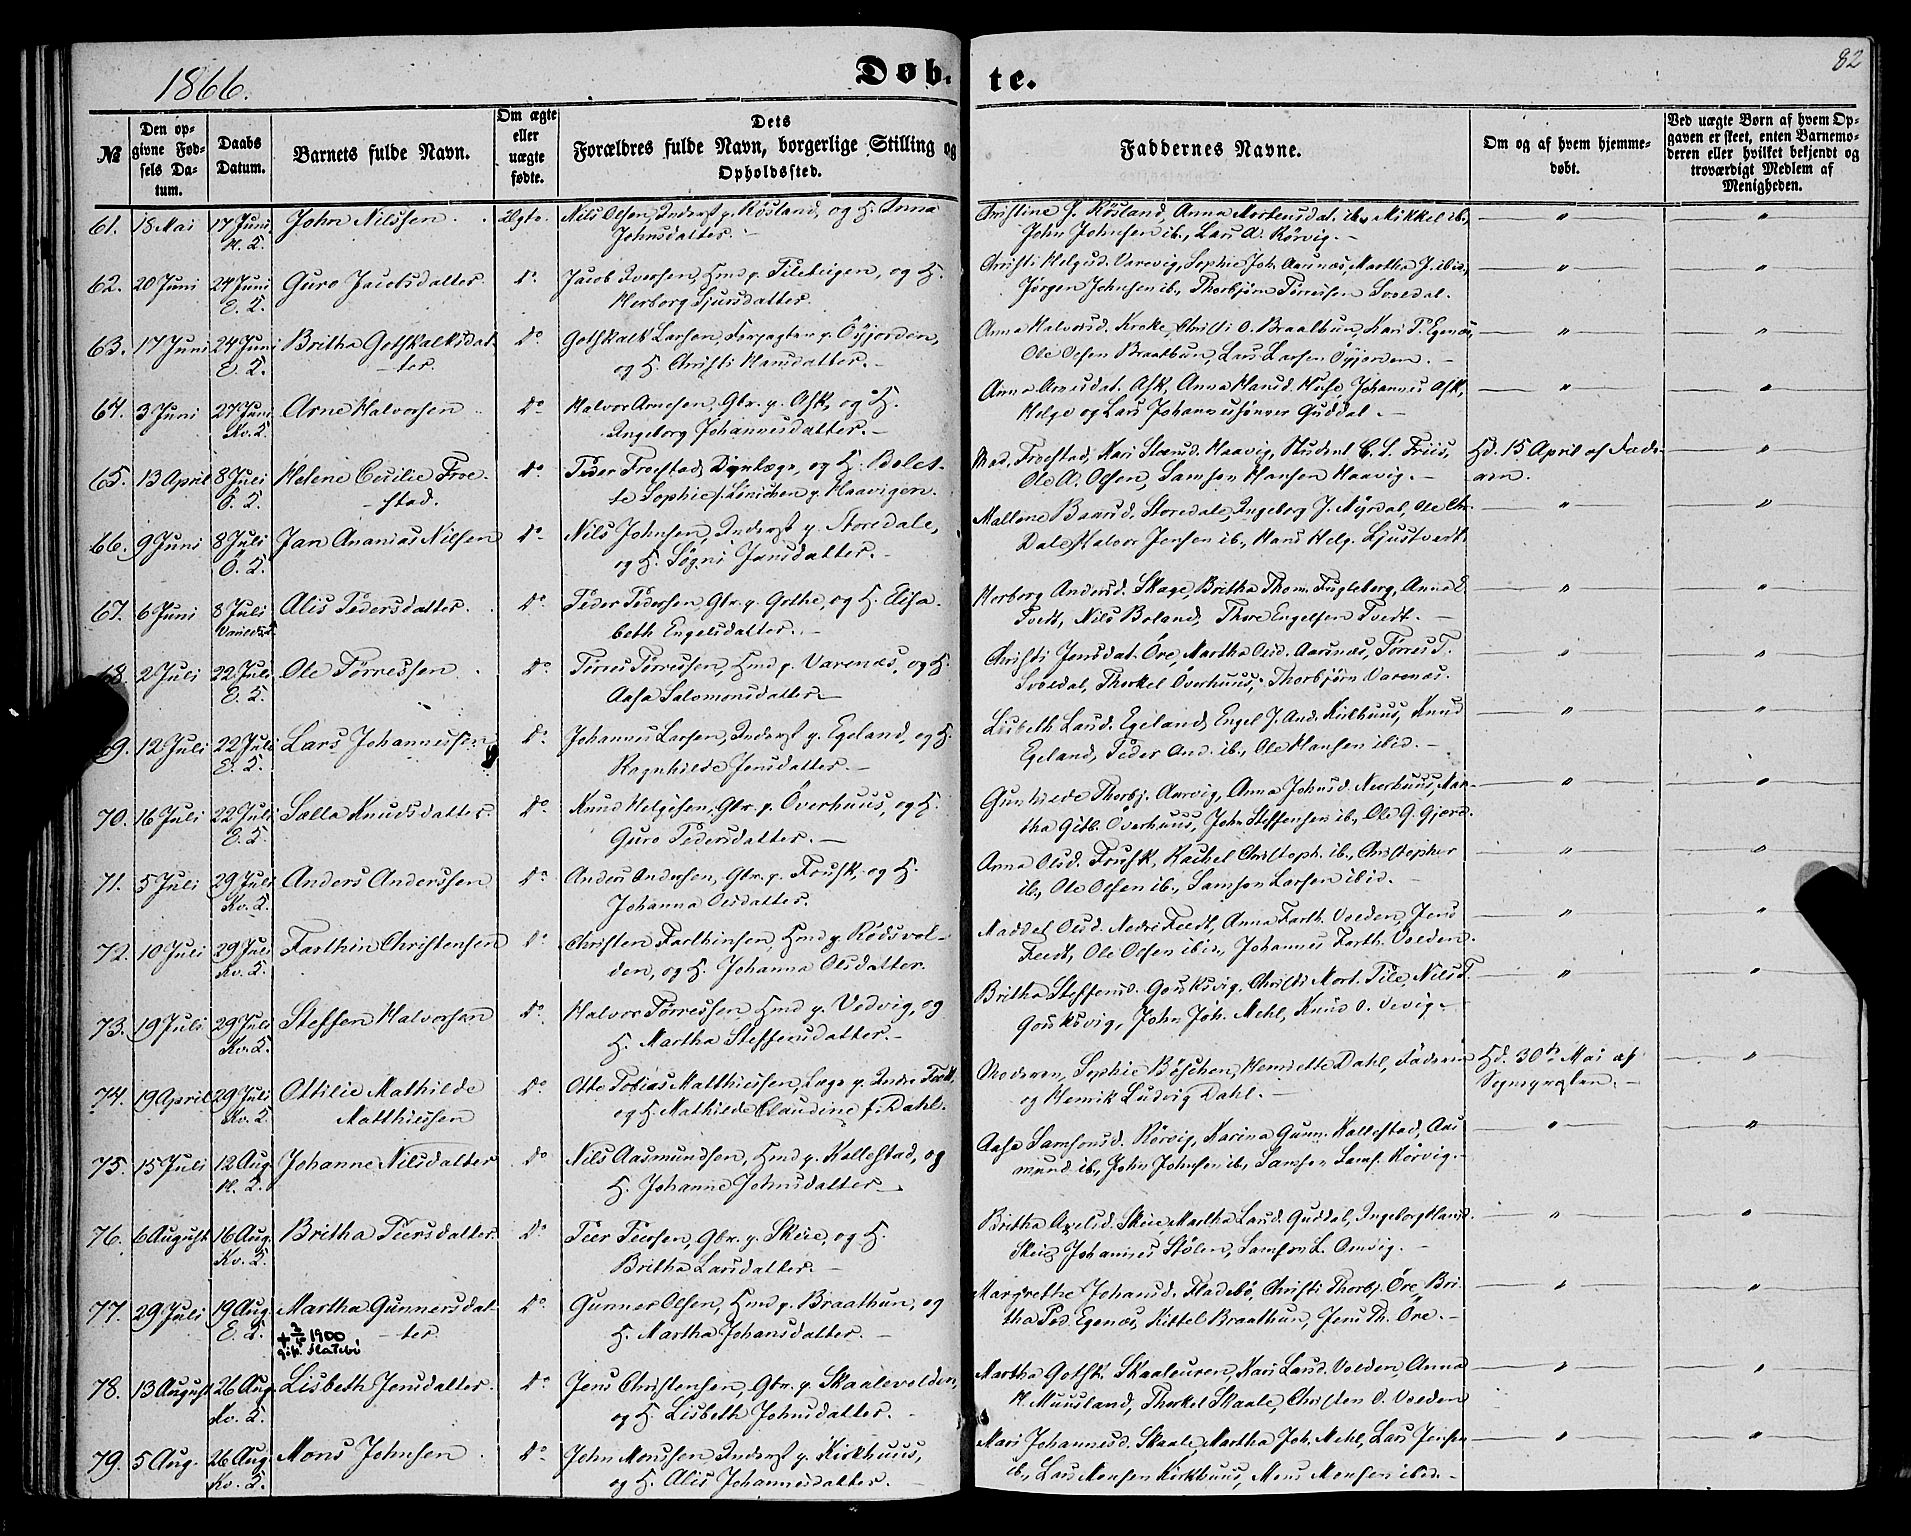 1866.
Døb.
te.
82
№
Den opgivne Fødsels Datum.
Daabs Datum.
Barnets fulde Navn.
Om ægte eller uægte fødte.
Dets Forældres fulde Navn, borgerlige Stilling og Opholdssted.
Faddernes Navne.
Om og af hvem hjemmedøbt.
Ved uægte Børn af hvem Opgaven er skeet, enten Barnemoderen eller hvilket bekjendt og troværdigt Medlem af Menigheden.
61. 18 Mai 17 Juni John Nilssen. Ægte. Nils Olsen, Inderst p. Røsland, og H. Anna
Johnsdatter.
Christine J. Røsland, Anna Mortensdat. ib., Mikkel ib.,
John Johnsen ib., Lars A. Rørvig. —
62. 20 Juni 24 Juni Guro Jacobsdatter. do Jacob Iversen, Hmd p. Teleteigen, og H.
E. K. Herborg Sjursdatter.
Christi Helgesd. Varevig, Sophie Joh. Aarsnæs, Martha J. ibid.,
Jørgen Johnsen ib., Thorbjørn Tørressen Svoldal.
63. 17 Juni 24 Juni Britha Gotskalksdat- do Gotskalk Larsen, Forpagter p. Øyjorden,
E. K. —ter. og H. Christi Hansdatter. —
Anna Halvorsd. Kroke, Christi O. Braathun, Kari T. Egenæs,
Ole Olsen Braathun, Lars Larsen Øyjorden. —
64. 3 Juni 27 Juni Arne Halvorsen do Halvor Arnesen, Gbr. p. Ask, og H.
Kv. K. Ingeborg Johannesdatter. —
Anna Arnesdat. Ask, Anna Hansd. Huse, Johannes Ask,
Helge og Lars Johannessønner Guddal. —
65. 13 April 8 Juli Helene Cecilie Froe- do Peder Froestad, Dyrlæge, og H. Bolet-
Ø. K. —stad. te Sophie f. Lønichen p. Haavigen.
Mad. Froestad, Kari Haavig, Student C. S. Friis,
Ole A. Olsen, Samson Hansen Haavig. —
Hd. 15 April af Fade-
ren.
66. 9 Juni 8 Juli Jan Ananias Nilsen do Nils Johnsen, Inderst p. Storedale,
Ø. K. og H. Søgni Jansdatter. —
Mallene Storedale, Ingeborg J. Myrdal, Ole Chr.
Dale, Halvor Jensen ib., Hans Helg. Ljustvedt.
67. 6 Juni 8 Juli Alis Pedersdatter. do Peder Pedersen, Gbr. p. Grthe, og H. Elisa-
beth Engelsdatter. —
Herborg Andersd. Skage, Britha Thom. Fugleberg, Anna E.
Tvedt, Nils Boland, Thore Engelsen Tvedt. —
68. 2 Juli 22 Juli Ole Tørressen do Tørres Tørressen, Hmd p. Varenæs, og H.
E. K. Aasa Salomonsdatter. —
Christi Jensdat. Øre, Martha Olsd. Aarsnæs, Tørres T.
Svoldal, Thorkel Øverhuus, Thorbjørn Varenæs.
69. 12 Juli 22 Juli Lars Johannessen do Johannes Larsen, Inderst p. Egeland, og H.
E. K. Ragnhilde Jensdatter. —
Lisbeth Larsd. Egeland, Engel J. And. Kirkhuus, Knud
Egeland, Peder And. ib., Ole Hansen ibid. —
70. 16 Juli 22 Juli Salla Knudsdatter. do Knud Helgesen, Gbr. p. Øverhuus, og H.
E. K. Guro Pedersdatter. —
Gunhilde Thorbj. Aarvig, Anna Johnsd. Neerhuus, Mar-
tha Gitl. Øverhuus, John Steffensen ib., Ole G. Gjerd.
71. 5 Juli 29 Juli Anders Anderssen do Anders Andersen, Gbr. p. Trusk, og H.
Kv. K. Johanna Olsdatter.
Anna Olsd. Trusk, Rachel Christoph. ib., Christopher
ib., Ole Olsen ib., Samson Larsen ibid. —
72. 10 Juli 29 Juli Farthin Christensen do Christen Farthinsen, Hmd p. Rødsvol-
Kv. K. den, og H. Johanna Olsdatter.
Maddel Olsd. Nedre Feedt, Anna Farth. Volden, Jens
Feedt, Ole Olsen ibid., Johannes Farth. Volden.
73. 19 Juli 29 Juli Steffen Halvorsen do Halvor Tørressen Hmd p. Vedvig, og
Kv. K. H. Martha Steffensdatter. —
Britha Steffensd. Gouksvig, Christi Mort. Tile, Nils T.
Gouksvig, John Joh. Mehl, Knud O. Vevig. —
74. 19 April 29 Juli Ottilie Mathilde do Otto Tobias Matthiessen, Læge p. Indre Feet,
Kv. K. Matthiessen og H. Mathilde Claudine f. Dahl.
Moderen, Sophie Bøschen, Henriette Dahl, Faderen
og Henrik Ludvig Dahl. —
Hd. 30te Mai af
Sognepresten. —
75. 15 Juli 12 Aug. Johanne Nilsdatter do Nils Aasmundsen, Hmd p. Kallestad, og
H. Johanne Johnsdatter. —
Aase Samsonsd. Rørvig, Karina Gunn. Kallestad, Aas-
mund ib., John Johnsen ib., Samson Sams. Rørvig. —
76. 6 August 16 Aug. Britha Peersdatter. do Peer Peersen, Gbr. p. Skeie, og H.
Kv. K. Britha Larsdatter. —
Britha Axelsd. Skeie, Martha Larsd. Guddal, Ingeborg Hansd.
Skeie, Johannes Stølen, Samson L. Omvig. —
77. 29 Juli 19 Aug. Martha Gunnersdat- do Gunner Olsen, Hmd p. Braathun, og
E. K. —ter. H. Martha Johansdatter. —
+ 1900
gift. Flatebø
Margrethe Johansd. Fladebø, Christi Thorbj. Øre, Bri-
tha Ped. Egenæs, Kittel Braathun, Jens Th. Øre. —
78. 13 August 26 Aug. Lisbeth Jensdatter. do Jens Christensen, Gbr. p. Skaalevolden,
Kv. K. og H. Lisbeth Johnsdatter. —
Martha Gotsk. Skaaleuren, Kari Larsd. Volden, Anna
H. Muusland, Thorkel Skaale, Christen O. Volden
79. 5 Aug. 26 Aug. Mons Johnsen do John Monssen, Inderst p. Kirkhuus,
Kv. K. og H. Alis Johannesdatter. —
Mari Johannesd. Skaale, Martha Joh. Mehl, Lars Jensen
ib., Lars Monsen Kirkhuus, Mons Monsen ibid. —